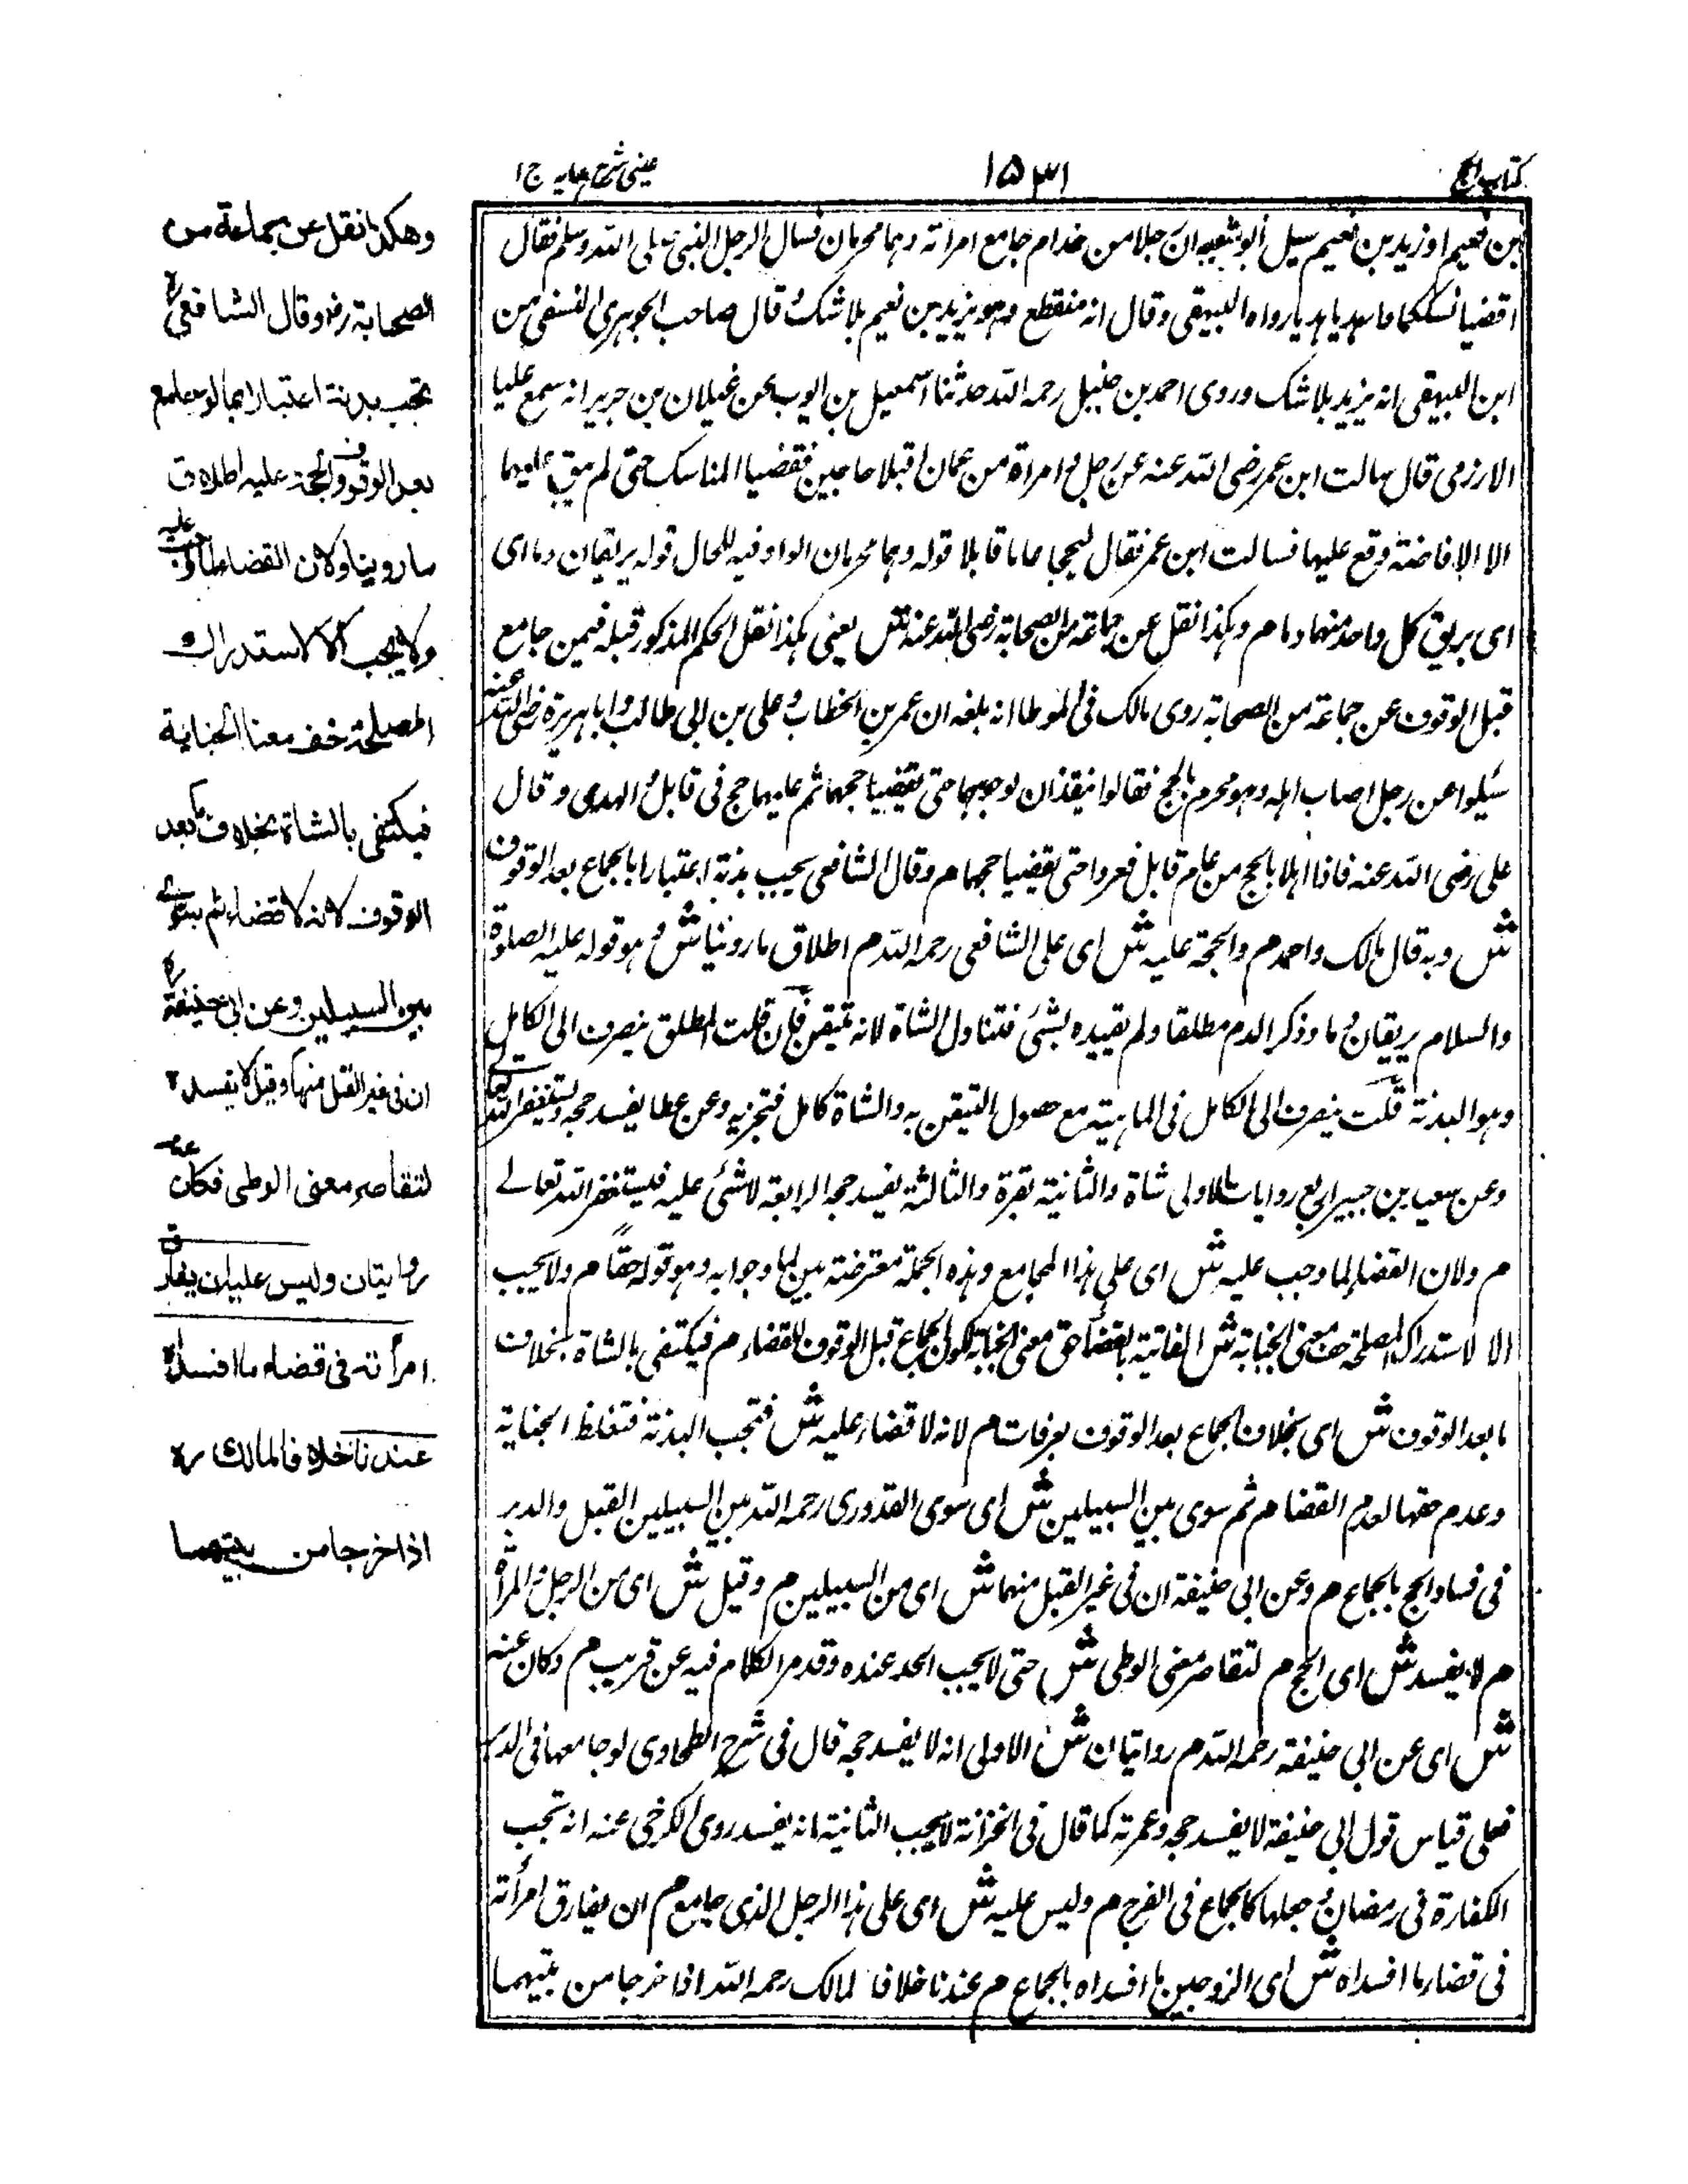 كتاب الحج
١٥٣١
عينى شرح هدايه ج ١
ابن نعيم او زيد بن نعيم سيل ابو شعبه ان رجلا من خدام جامع امراته وهما محرمان فسال الرجل النبى صلى الله وسلم فقال
اقضيا نسككما واهديا هديا رواه البيهقى وقال انه منقطع وهو يزيد بن نعيم بلا شك قال صاحب الجوهرى النسفى من
ابن البيهقى انه يزيد بلا شك وروى احمد بن حنبل رحمه الله حدثنا اسمعيل بن ايوب عن غيلان بن جرير انه سمع عليا
الازرمى قال سالت ابن عمر رضى الله عنه عن رجل وامراة من عمان اقبلا حاجين فقضيا المناسك حتى لم يبق عليهما
الا الافاضة وقع عليها فسالت ابن عمر فقال ليحجا عاما قابلا قوله وهما محرمان الواو فيه للحال قوله يريقان دما اى
اى يريق كل واحد منهما دما م وهكذا نقل عن جماعة من الصحابة رضى الله عنه ش يعنى هكذا نقل الحكم المذكور قبله فيمن جامع
قبل الوقوف عن جماعة من الصحابة روى مالك فى الموطا انه بلغه ان عمر بن الخطاب و على بن ابى طالب وابا هريرة رضى الله عنه
سئلوا عن رجل اصاب اهله وهو محرم بالحج فقالوا ينفذان لوجههما حتى يقضيا حجهما ثم عليهما حج فى قابل والهدى وقال
على رضى الله عنه فاذا اهلا بالحج من عام قابل تفرقا حتى يقضيا حجهما م وقال الشافعى يجب بدنة اعتبارا بالجماع بعد الوقوف
ش وبه قال مالك واحمد م والحجة عليه ش اى على الشافعى رحمه الله م اطلاق ما روينا ش وهو قوله عليه الصلوة
والسلام يريقان دما وذكر الدم مطلقا ولم يقيده بشئ فتناول الشاة لانه متيقن فان قلت المطلق ينصرف الى الكامل
وهو البدنة قلت ينصرف الى الكامل فى الماهية مع حصول التيقن به والشاة كامل فتجزيه وعن عطا يفسد حجه ويستغفر الله تعالى
وعن سعيد بن جبير اربع روايات الاولى شاة والثانية بقرة والثالثة يفسد حجه الرابعة لا شئ عليه فيستغفر الله تعالى
م ولان القضاء لما وجب عليه ش اى على هذا المجامع وهذه الجملة معترضة بين لما وجوابه وهو قوله حقا م ولا يجب
الا لاستدراك المصلحة خف معنى الجناية ش الفائتة بالقضا خف معنى الجناية لكون الجماع قبل الوقوف للقضاء م فيكتفى بالشاة بخلاف
ما بعد الوقوف ش اى بخلاف الجماع بعد الوقوف بعرفات م لانه لا قضاء عليه ش فتجب البدنة فتغلظ الجناية
وعدم خفها لعدم القضا م ثم سوى بين السبيلين ش اى سوى القدورى رحمه الله بين السبيلين القبل والدبر
فى فساد الحج بالجماع م وعن ابى حنيفة ان فى غير القبل منهما ش اى من السبيلين م وقيل ش اى من الرجل والمرأة
م لا يفسد ش اى الحج م لتقاصر معنى الوطى ش حتى لا يجب الحد عنده وقد مر الكلام فيه عن قريب م وكان عنه
ش اى عن ابى حنيفة رحمه الله م روايتان ش الاولى انه لا يفسد حجه قال فى شرح الطحاوى لو جامعها فى الدبر
فعلى قياس قول ابى حنيفة لا يفسد حجه وعمرته كما قال فى الخزانة لا يجب الثانية انه يفسد روى الكرخى عنه انه تجب
الكفارة فى رمضان و جعلها كالجماع فى الفرج م وليس عليه ش اى على هذا الرجل الذى جامع م ان يفارق امرأته
فى قضاء ما افسداه ش اى الزوجين ما افسداه بالجماع م عندنا خلافا لمالك رحمه الله اذا خرجا من بيتهما
وهكذا نقل عن جماعة من
الصحابة رضو وقال الشافعى ره
تجب بدنة اعتبارا بما لو جامع
بعد الوقوف والحجة عليه اطلاق
ما روينا ولان القضاء لما وجب عليه
ولا يجب الا لاستدراك
المصلحة خف معنا الجناية
فيكتفى بالشاة بخلاف ما بعد
الوقوف لانه لا قضاء ثم سوى
بين السبيلين وعن ابى حنيفة ره
ان فى غير القبل منهما وقيل لا يفسد
لتقاصر معنى الوطى فكان عنه
روايتان وليس عليه ان يفارق
امرأته فى قضاء ما افسداه
عندنا خلافا لمالك ره
اذا خرجا من بيتهما